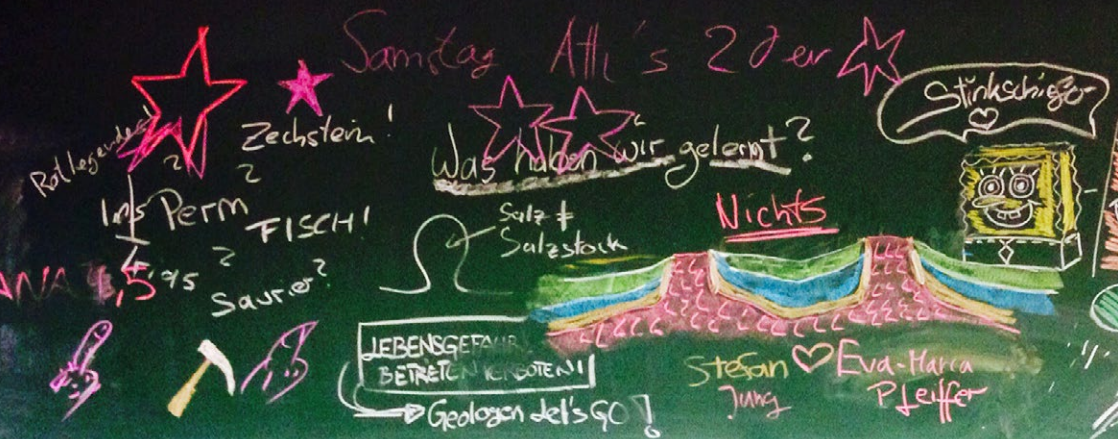 Samstag Atti's 20er
Stinkschiefer
Rotliegendes!
Zechstein!
Was haben wir gelernt?
Nichts
Ins Perm
?
?
FISCH!
?
Saurier?
Salz ≠
Salzstock
LEBENSGEFAHR
BETRETEN VERBOTEN!!
Geologen let's GO!
Stefan ♡ Eva-Maria
Jung Pfeiffer